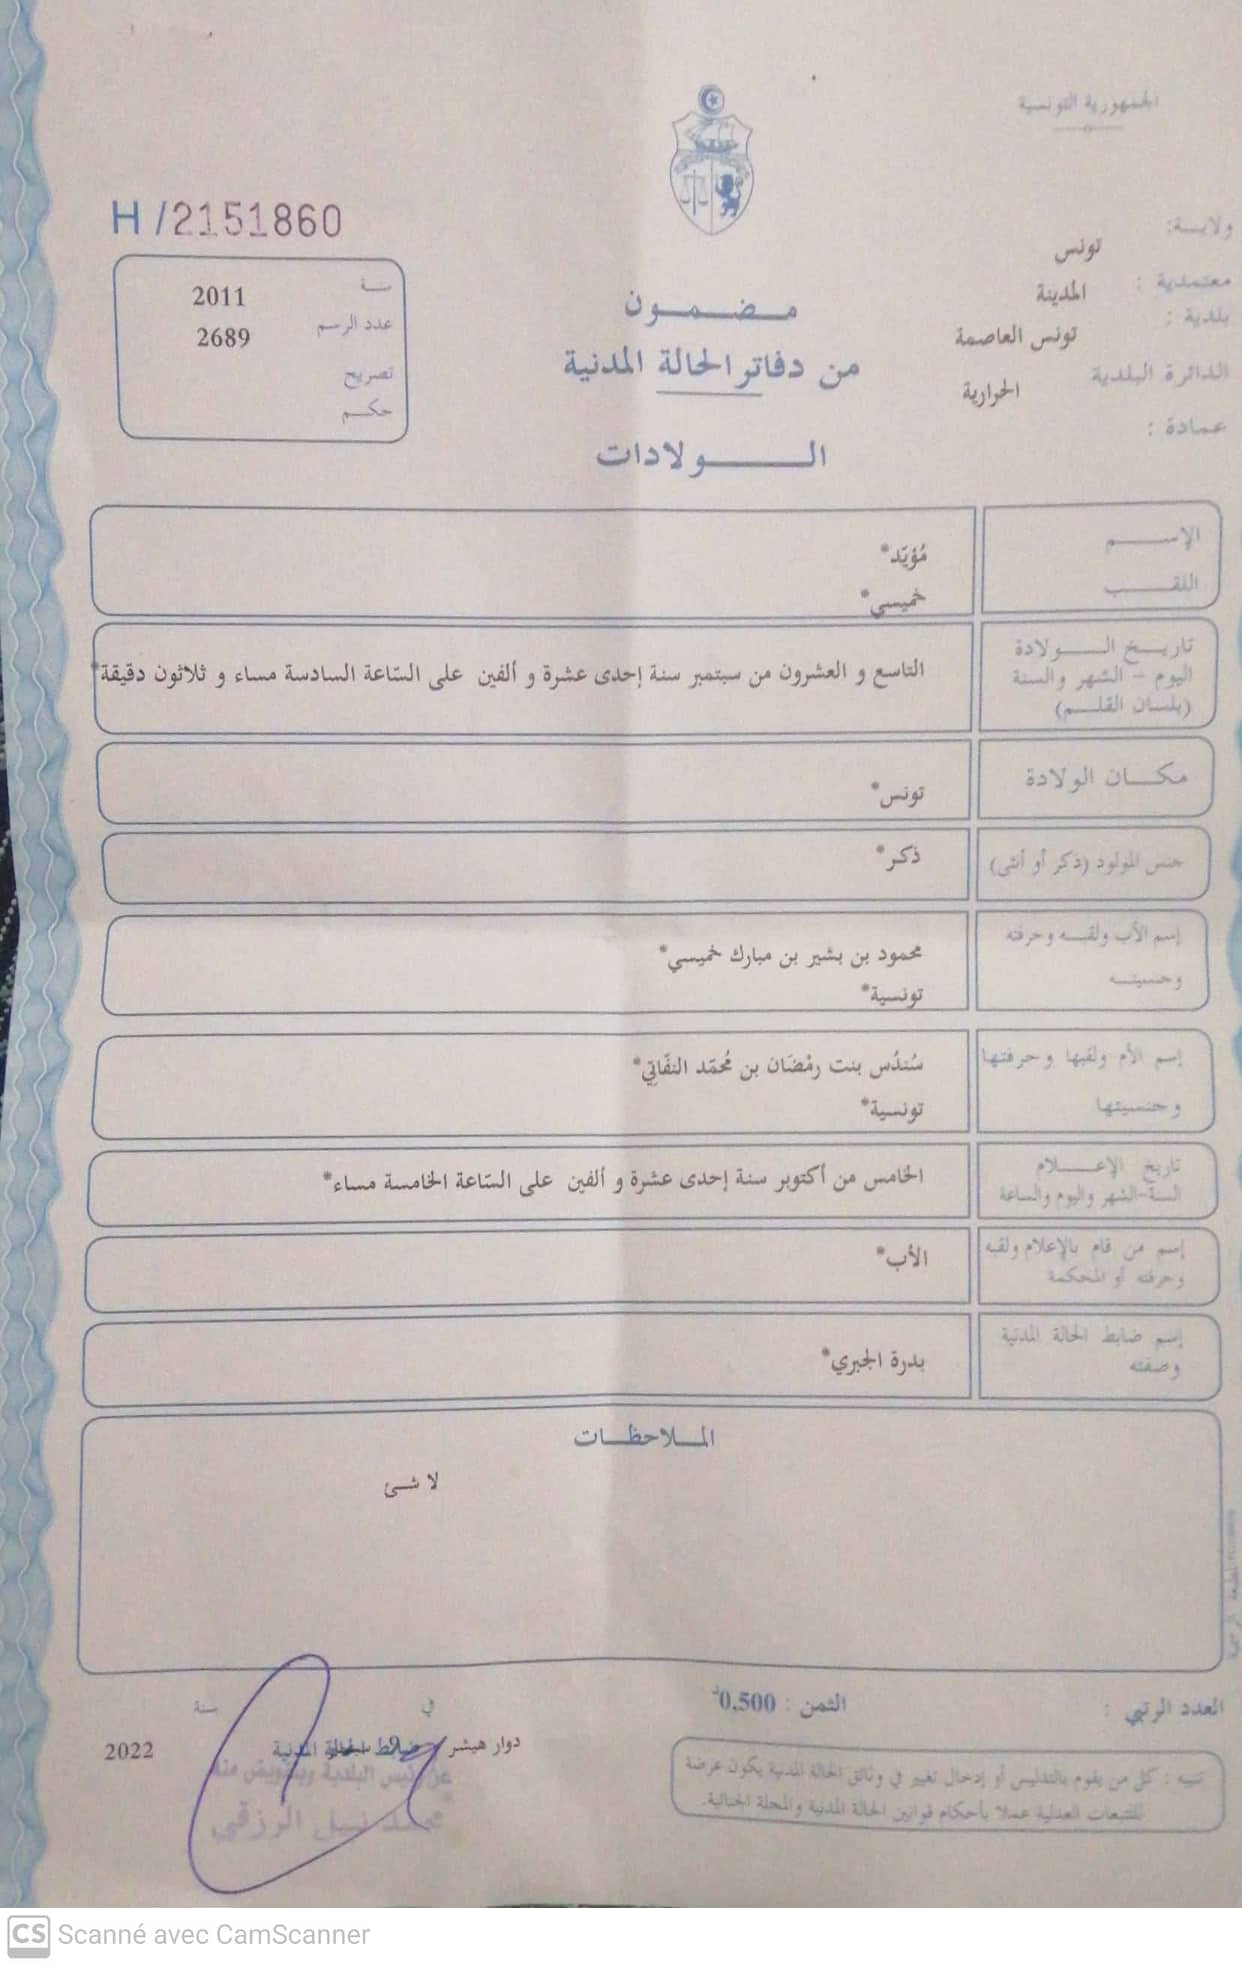 الجمهورية التونسية
H/2151860
ولايــة: تونس
معتمدية : المدينة
بلدية : تونس العاصمة
الدائرة البلدية الحرارية
عمادة :
سنة 2011
عدد الرسم 2689
تصريح
حكم
مضمون
من دفاتر الحالة المدنية
الولادات
الإسم مُؤيّد*
اللقب خميسي*
تاريخ الولادة
اليوم - الشهر والسنة
(بلسان القلم)
التاسع و العشرون من سبتمبر سنة إحدى عشرة و ألفين على السّاعة السادسة مساء و ثلاثون دقيقة*
مكان الولادة تونس*
جنس المولود (ذكر أو أنثى) ذكر*
إسم الأب ولقبه وحرفته محمود بن بشير بن مبارك خميسي*
وجنسيته تونسية*
إسم الأم ولقبها وحرفتها سُندُس بنت رمْضَان بن مُحمّد النفّاتِي*
وجنسيتها تونسية*
تاريخ الإعلام
السنة-الشهر واليوم والساعة
الخامس من أكتوبر سنة إحدى عشرة و ألفين على السّاعة الخامسة مساء*
إسم من قام بالإعلام ولقبه
وحرفته أو المحكمة
الأب*
إسم ضابط الحالة المدنية
وصفته
بدرة الجبري*
الملاحظات
لا شئ
العدد الرتبي :
الثمن : 0,500د
في
سنة
دوار هيشر
2022
ضابط الحالة المدنية
عن رئيس البلدية وبتفويض منه
محمد نبيل الرزقي
تنبيه : كل من يقوم بالتدليس أو إدخال تغيير في وثائق الحالة المدنية يكون عرضة
للتتبعات العدلية عملا بأحكام قوانين الحالة المدنية والمجلة الجنائية.
CS Scanné avec CamScanner